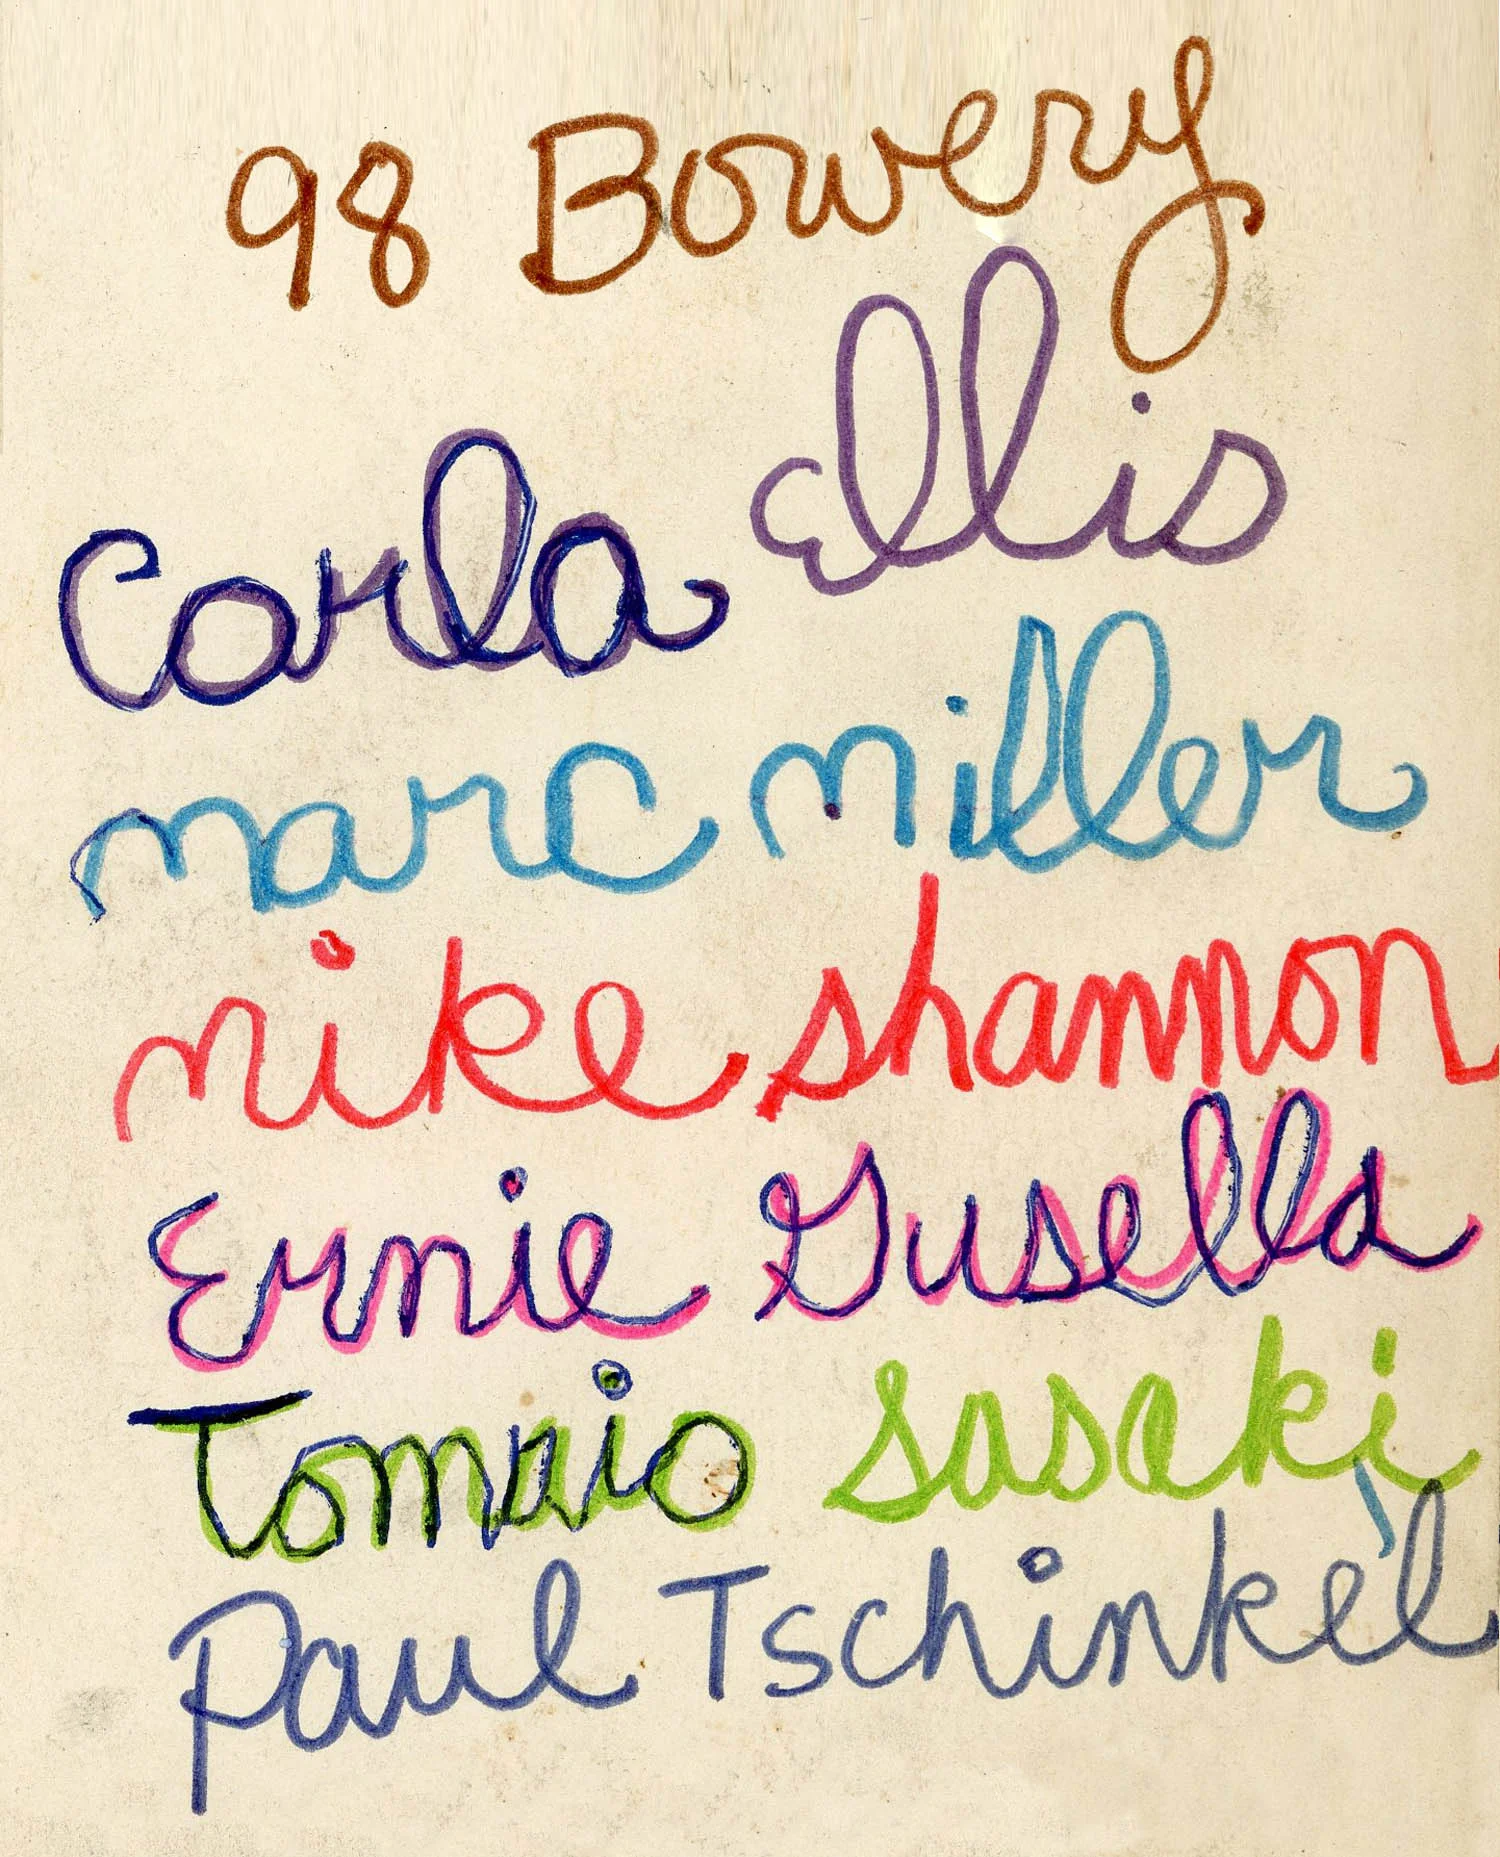 98 Bowery
Carla Ellis
marc miller
mike shannon
Ernie Gusella
Tomaio Sasaki
Paul Tschinkel